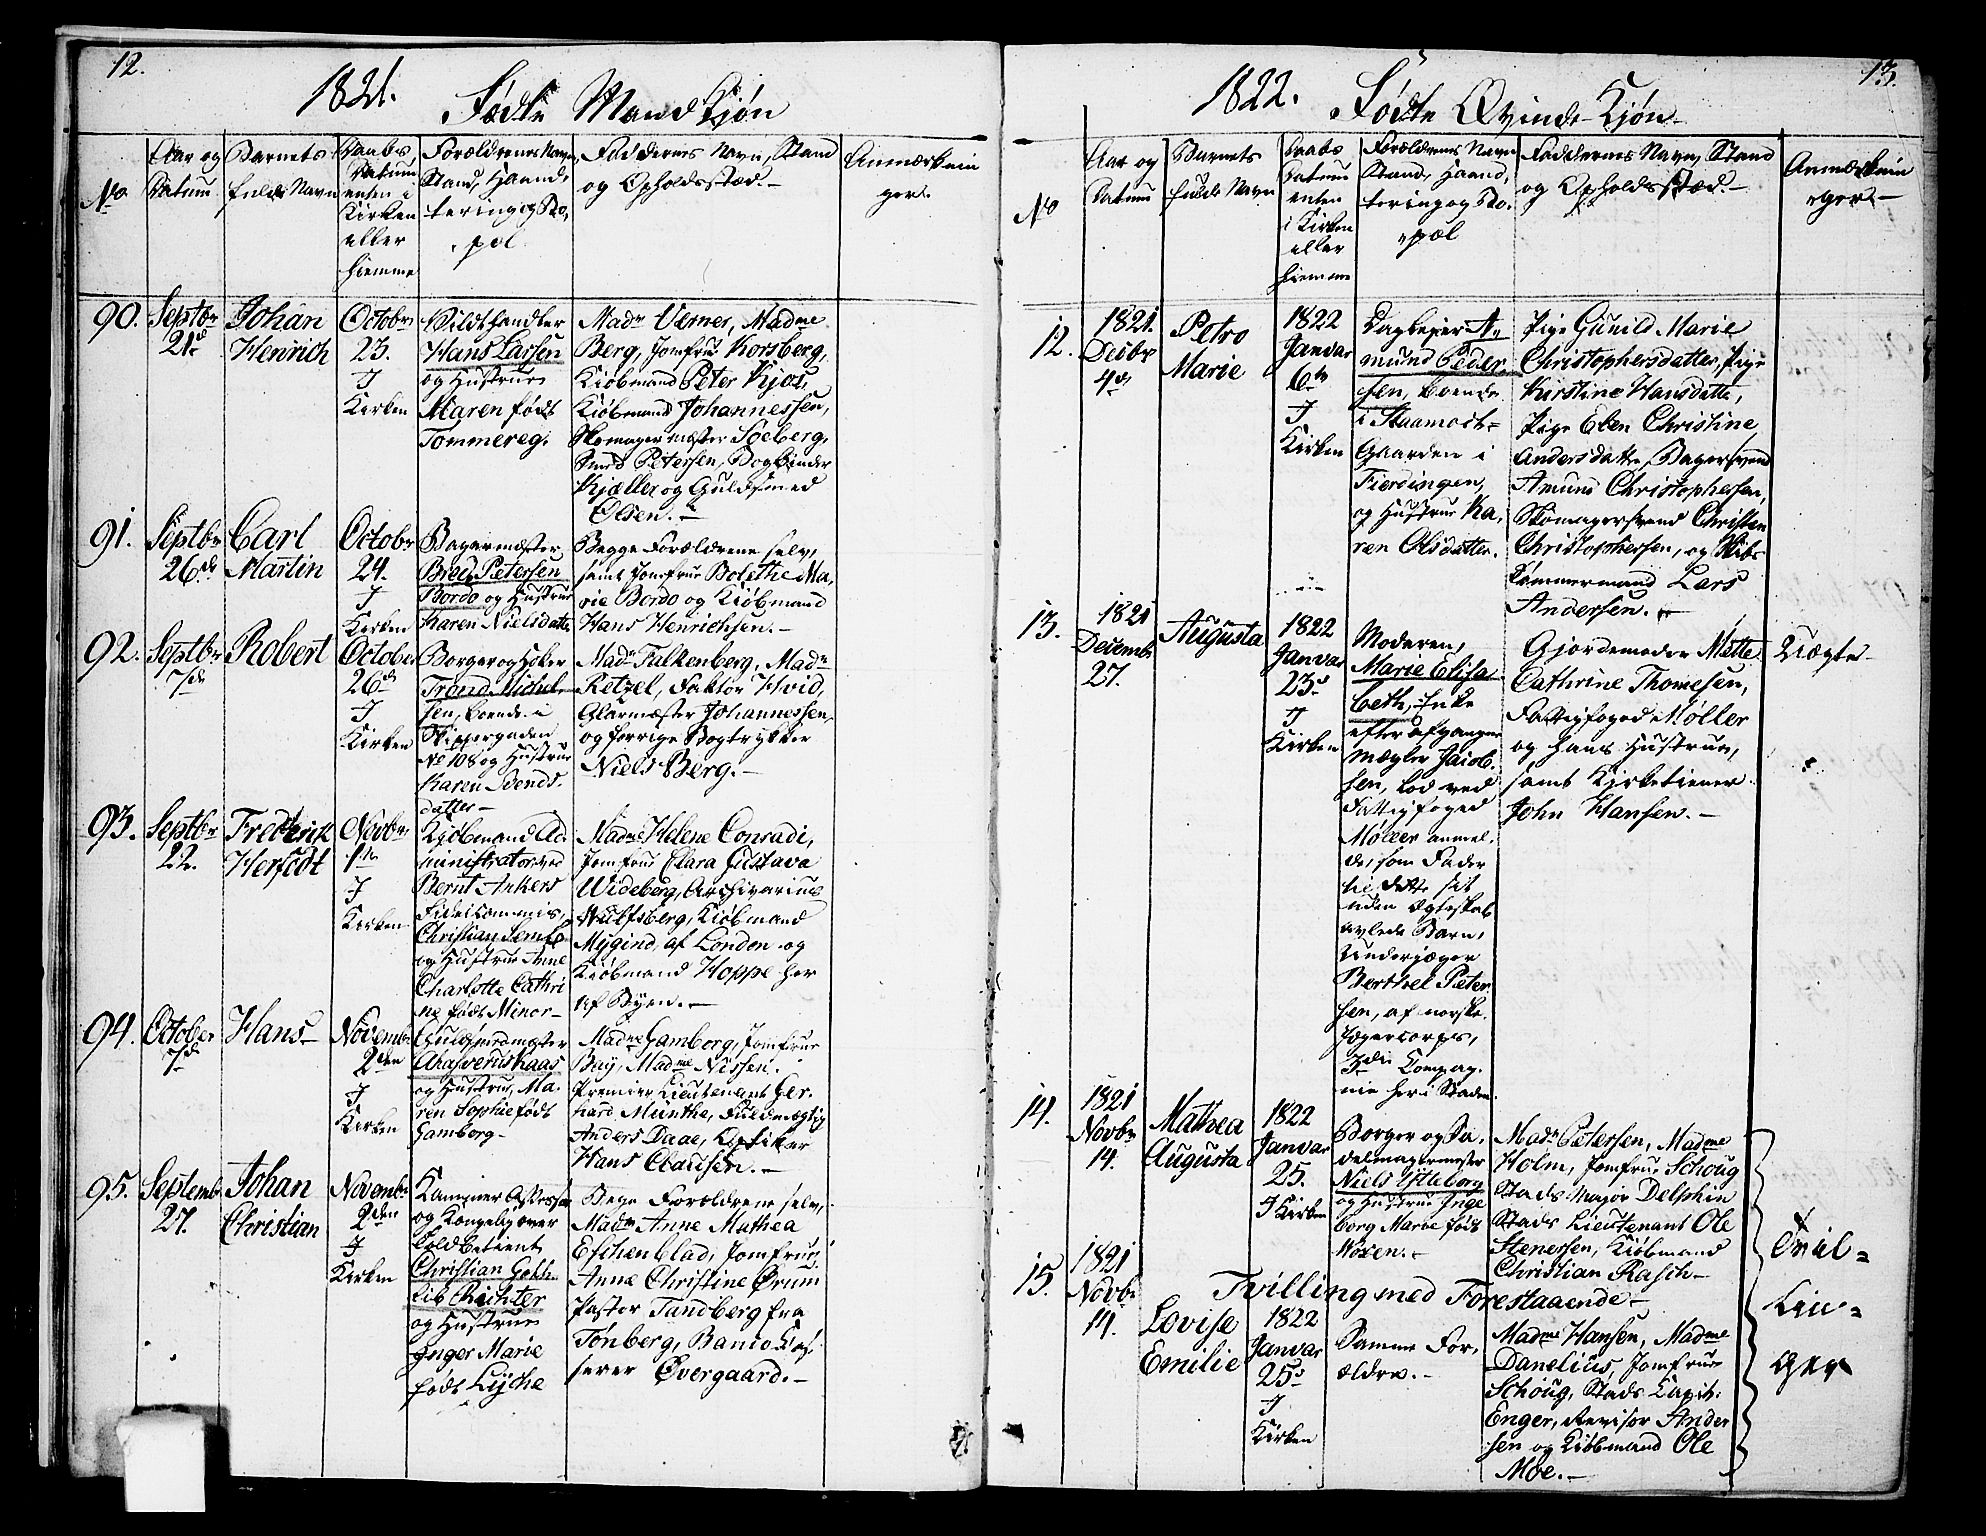 12.
1821.
Fødte Mandkjøn
No
Aar og
Datum
Barnets
fulde Navn
Daabs
Datum
enten i
Kirken
eller
hiemme
Forældrenes Navn,
Stand, Haand,
tering og Bo,
pæl
Faddernes Navn, Stand
og Opholdsstæd.-
Anmærknin
ger.
90.
Septbr
21d
Johan
Henrich
Octobr
23.
I
Kirken
Vildthandler
Hans Larsen
og Hustrue
Maren født
Tommereg.
Madm Verner, Madme
Berg, Jomfru Korsberg,
Kiøbmand Peter Kjos,
Kiøbmand Johannessen,
Skomagermæster Soeberg,
Smed Petersen, Bogbinder
Kjæller og Guldsmed
Olsen.-
91.
Septbr
26de
Carl
Martin
Octobr
24.
I
Kirken
Bagermæster
Bred. Petersen
Bordo og Hustrue
Karen Nielsdatte
Begge Forældrene selv,
samt Jomfrue Bolethe Ma,
rie Bordo og Kiøbmand
Hans Henrichsen.-
92.
Septbr
7de
Robert
October
26d
I
Kirken
Borger og Høker
Trond Michel,
sen, boende i
Skippergaden
No 108 og Hustrue
Karen Bends,
datter-
Madm Falkenberg, Madm
Retzel, Faktor Hvid,
Glarmæster Johannessen,
og forrige Bogtrykker
Niels Berg.-
93.
Septbr
22.
Frederik
Herfedt
Novbr
1te
I
Kirken
Kjøbmand Ad
ministrator ved
Bernt Ankers
Fideicommis,
Christian Semb
og Hustrue Anne
Charlotte Cathri
ne født Minor-
Madme Helene Conradi,
Jomfrue Clara Gustava
Wideberg, Archivarius
Wulfsberg, Kiøbmand
Mygind, af London og
Kiøbmand Hoppe her
af Byen.-
94.
October
7d
Hans-
Novembr
2den
I
Kirken
Ahasverus Kaas
og Hustrue, Ma,
ren Sophie født
Gamborg-
Madme Gamborg, Jomfrue
Bay, Madme Nissen.
Premier Lieutenant Ger,
hard Munthe, Fuldmægtig
Anders Daae, Optiker
Hans Clausen.-
95.
Septemb
27.
Johan
Christian
Novembr
2den
I
Kirken
Kammer Assessor
og Kongelig over
Toldbetient
Christian Goth,
lib Richter
og Hustrue
Inger Marie
født Lyche
Bege Forældrene selv,
Madm Anne Mathea
Eschenblad, Jomfrue
Anne Christine Ørum
Pastor Tandberg fra
Tønberg, Banco Kas,
serer Øvergaard.-
13.
1822.
Fødte Qvinde-Kjøn-
No
Aar og
Datum
Barnets
fulde Navn
Daabs
Datum
enten
i Kirken
eller
hiemme
Forældrenes Navn
Stand, Haand,
tering og Bo,
pæl
Faddernes Navn, Stand
og Opholdsstæd.-
Anmærknin
ger.-
12.
1821.
Decbr
4de
Petro
Marie
1822
Januar
6te
I
Kirken
Dagleier A,
mund Peder,
sen, boende
i Staamoch-
Gaarden i
Fierdingen,
og Hustrue Ka,
ren Olsdatter.
Pige Gunild Marie
Christophersdatter, Pige
Kirstine Hansdatte,
Pige Elen Christine
Andersdatte, Bagersvend
Amund Christophersen,
Skomagersvend Christen
Christophersen, og Skibs
tømmermand Lars
Andersen.-
13.
1821
Decembr
27.
Augusta
1822
Januar
23d
I
Kirken
Moderen,
Marie Elisa,
beth, Enke
efter afgangne
Mægler Jacob,
sen, lod ved
Fattigfoged
Møller anmel,
de, som Fader
til dette sit
uden Ægteskab
avlede Barn,
Underjæger
Berthel Peter
sen, af norske
Jægercorps,
3die Compag,
nie her i Staden
Gjordemoder Mette
Cathrine Thomesen,
Fattigfoged Møller
og hans Hustrue,
samt Kirketiener
John Hansen.-
Uægte-
14.
1821
Novbr
14.
Mathea
Augusta
1822
Januar
25.
I Kirken
Borger og Sa,
delmagermester
Niels Ytteborg
og Hustrue Inge
borg Marie født
Moxen.-
Madm Petersen, Madme
Holm, Jomfrue Schoug
Stads Major Delphin
Stads Lieutenant Ole
Stenersen, Kiøbmand
Christian Rasch-
Tvil-
lin-
ger
15.
1821
Novbr
14.
Tvilling med Forestaaende-
Lovise
Emilie
1822
Januar
25d
I
Kirken
Samme For,
ældre.-
Madme Hansen, Madme
Danelius, Jomfrue
Schoug, Stads Kapit:
Enger, Revisor Ander
sen og Kiøbmand Ole
Moe.-